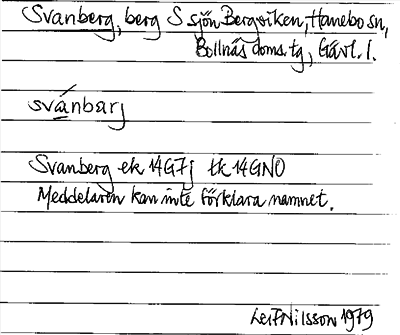 Svanberg, berg S sjön Bergviken, Hanebo sn,
Bollnäs doms. tg, Gävl. l.
svánbarj
Svanberg ek 14G7j tk 14GNO
Meddelaren kan inte förklara namnet.
Leif Nilsson 1979